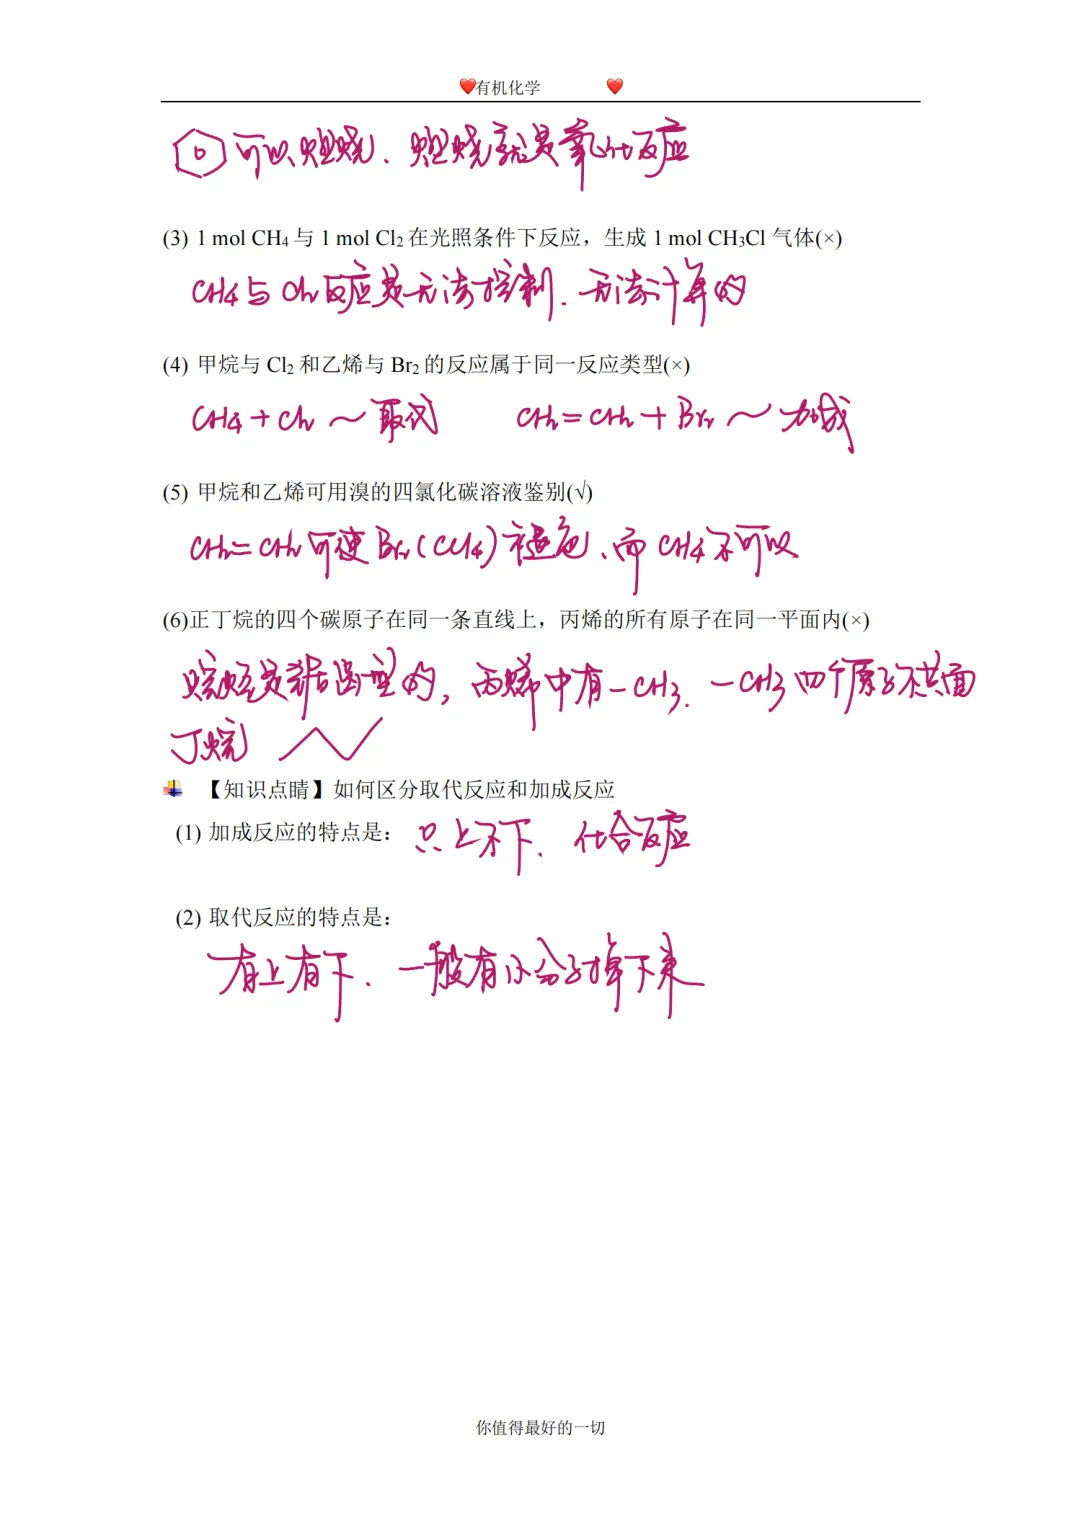 ❤有机化学 ❤
可以燃烧、燃烧就是氧化反应
(3) 1 mol CH₄与 1 mol Cl₂在光照条件下反应，生成 1 mol CH₃Cl 气体(×)
CH4与Cl2反应是无法控制、无法计算的
(4) 甲烷与 Cl₂ 和乙烯与 Br₂ 的反应属于同一反应类型(×)
CH4 + Cl2 ～ 取代 CH2=CH2 + Br2 ～ 加成
(5) 甲烷和乙烯可用溴的四氯化碳溶液鉴别(√)
CH2=CH2可使Br2(CCl4)褪色、而CH4不可以
(6)正丁烷的四个碳原子在同一条直线上，丙烯的所有原子在同一平面内(×)
烷烃是锯齿型的，丙烯中有-CH3、-CH3四个原子不共面
丁烷
【知识点睛】如何区分取代反应和加成反应
(1) 加成反应的特点是：只上不下、化合反应
(2) 取代反应的特点是：
有上有下、一般有小分子掉下来
你值得最好的一切